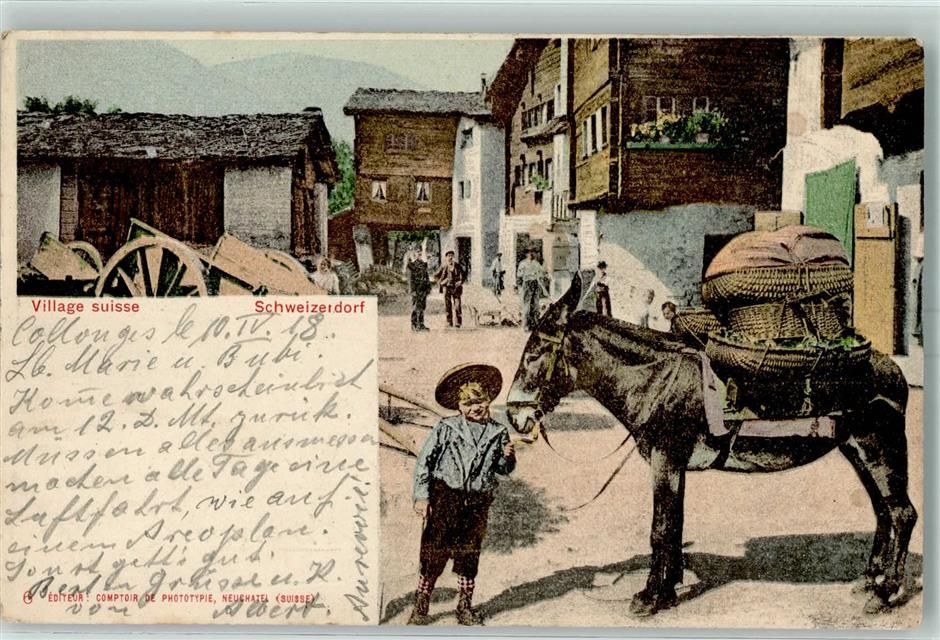 Village suisse Schweizerdorf
Collonges le 10. IV. 18.
Lb. Marie u. Bubi.
Kome wahrscheinlich
am 12. D. Mt. zurük.
Müssen alles ausmessen
machen alle Tage eine
Luftfahrt, wie auf
einem Areoplan.
Sonst geht's gut.
Beste Grüsse u. K.
von Albert.
Aurevoir!
EDITEUR: COMPTOIR DE PHOTOTYPIE, NEUCHATEL (SUISSE)